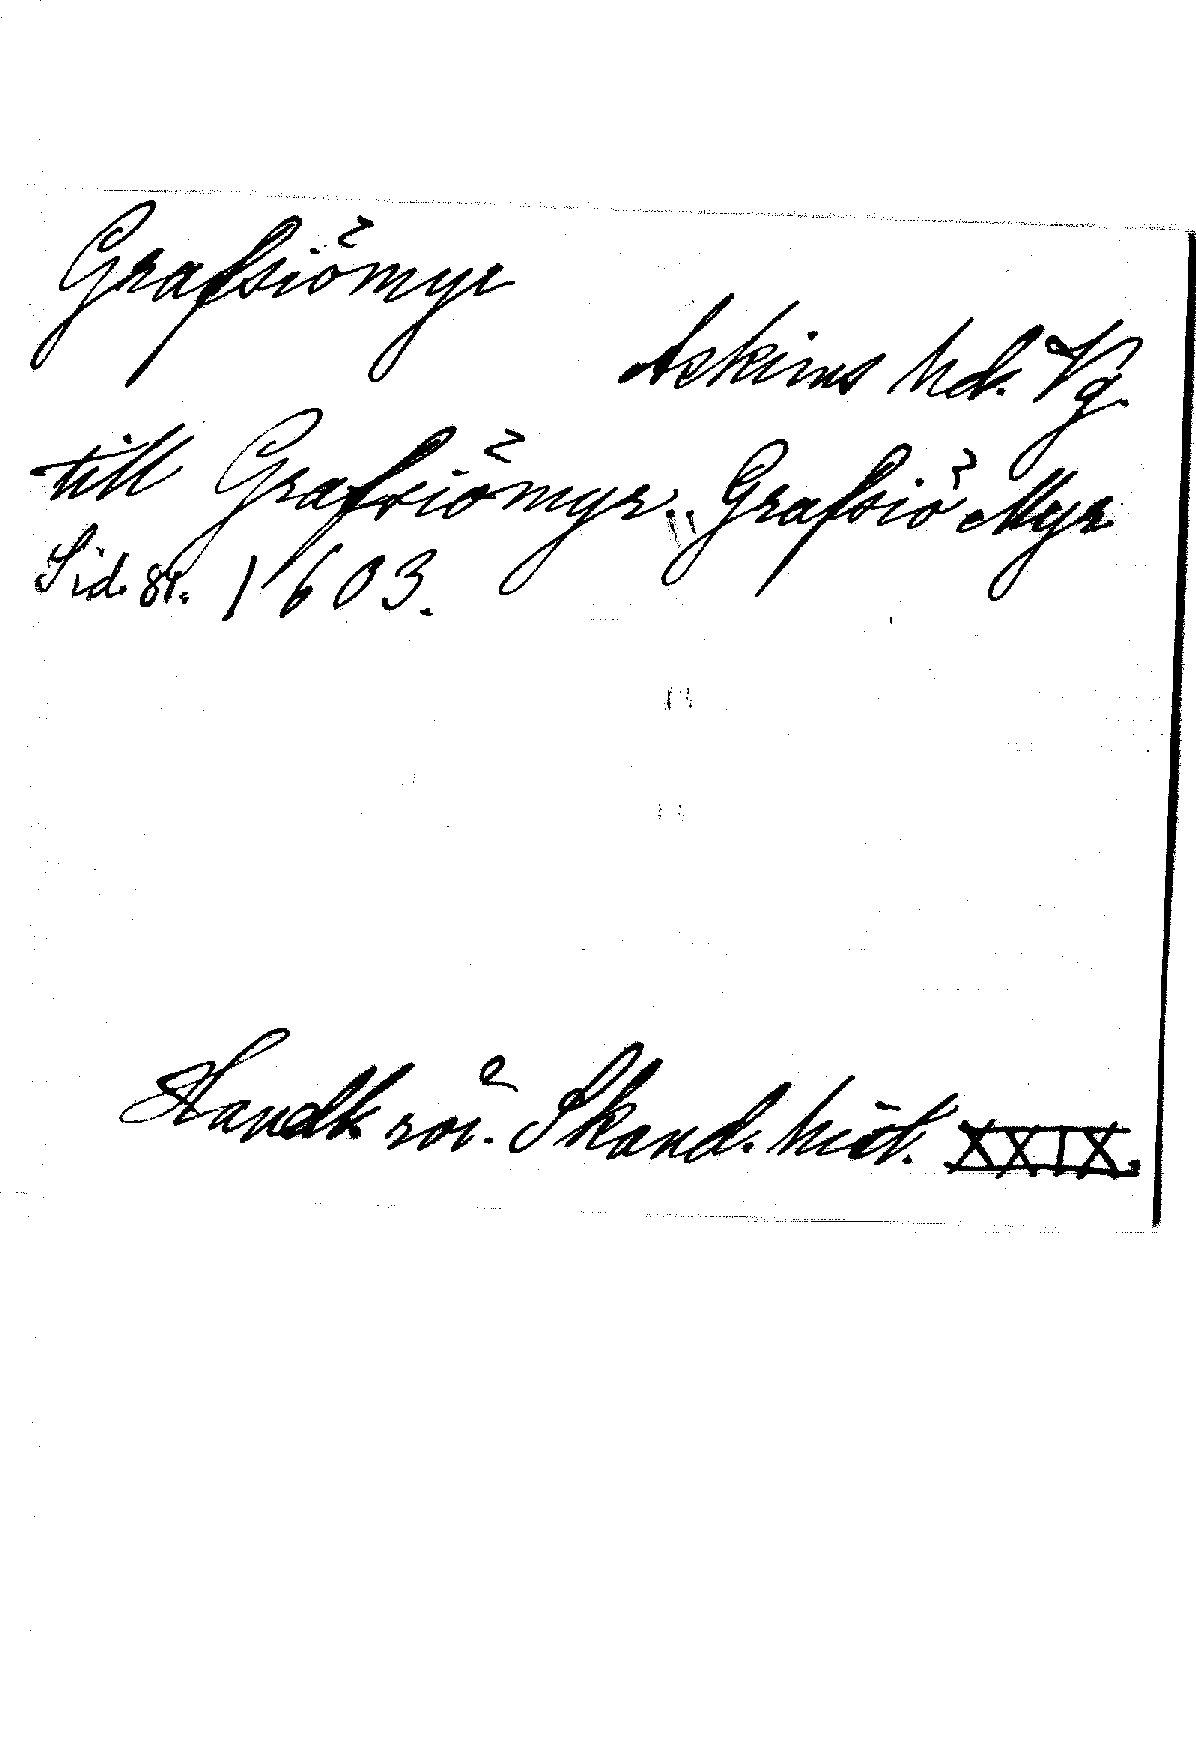 Grafsiömyr
Askims hd. Vg.
till Grafsiömyr. Grafsiö Myr
Sid. 81. 1603.
Handl. rör. Skand. hist. XXIX.